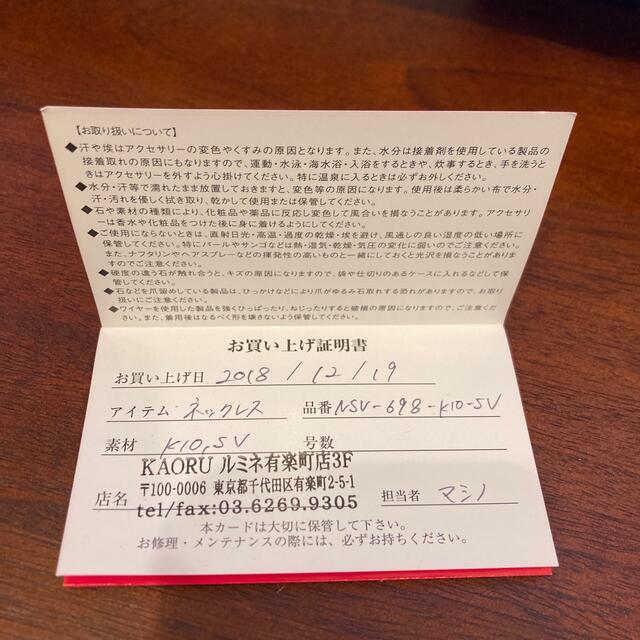 【お取り扱いについて】
◆汗や埃はアクセサリーの変色やくすみの原因となります。また、水分は接着剤を使用している製品の
接着取れの原因にもなりますので、運動・水泳・海水浴・入浴をするときや、炊事するとき、手を洗うと
きはアクセサリーを外すよう心掛けてください。特に温泉に入るときは必ずお外しください。
◆水分・汗等で濡れたまま放置しておきますと、変色等の原因になります。使用後は柔らかい布で水分・
汗・汚れを優しく拭き取り、乾かして使用または保管してください。
◆石や素材の種類により、化粧品や薬品に反応し変色して風合いを損なうことがあります。アクセサリ
ーは香水や化粧品をつけた後に身に着けるようにしてください。
◆ご使用にならないときは、直射日光・高温・過度の乾燥・埃を避け、風通しの良い湿度の低い場所に
保管してください。特にパールやサンゴなどは熱・湿気・乾燥・気圧の変化に弱いのでご注意ください。
また、ナフタリンやヘアスプレーなどの揮発性の高いものと一緒にしておくと光沢を損なうことがありま
すのでご注意ください。
◆硬度の違う石が触れ合うと、キズの原因になりますので、袋や仕切りのあるケースに入れるなどして保
管してください。
◆石などを爪留めしている製品は、ひっかけなどにより爪がゆるみ石取れする恐れがありますので、お取り
扱いにご注意ください。
◆ワイヤーを使用した製品を強くひっぱったり、ねじったりすると破損の原因になりますので、ご注意くだ
さい。また、着用後はなるべく形を壊さないよう保管してください。
お買い上げ証明書
お買い上げ日 2018/12/19
アイテム ネックレス 品番 NSV-698-K10-SV
素材 K10,SV 号数
KAORU ルミネ有楽町店3F
〒100-0006 東京都千代田区有楽町2-5-1
店名 tel/fax:03.6269.9305 担当者 マシノ
本カードは大切に保管して下さい。
お修理・メンテナンスの際には、必ずお持ちください。